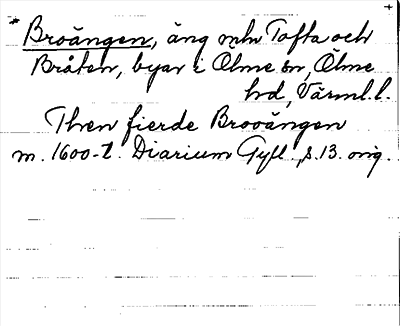 * Broängen, äng mln Tofta och
Bråten, byar i Ölme sn, Ölme
hd, Värml. l.
Then fierde Brooängen
m. 1600-t. Diarium Gyll., s. 13. orig.